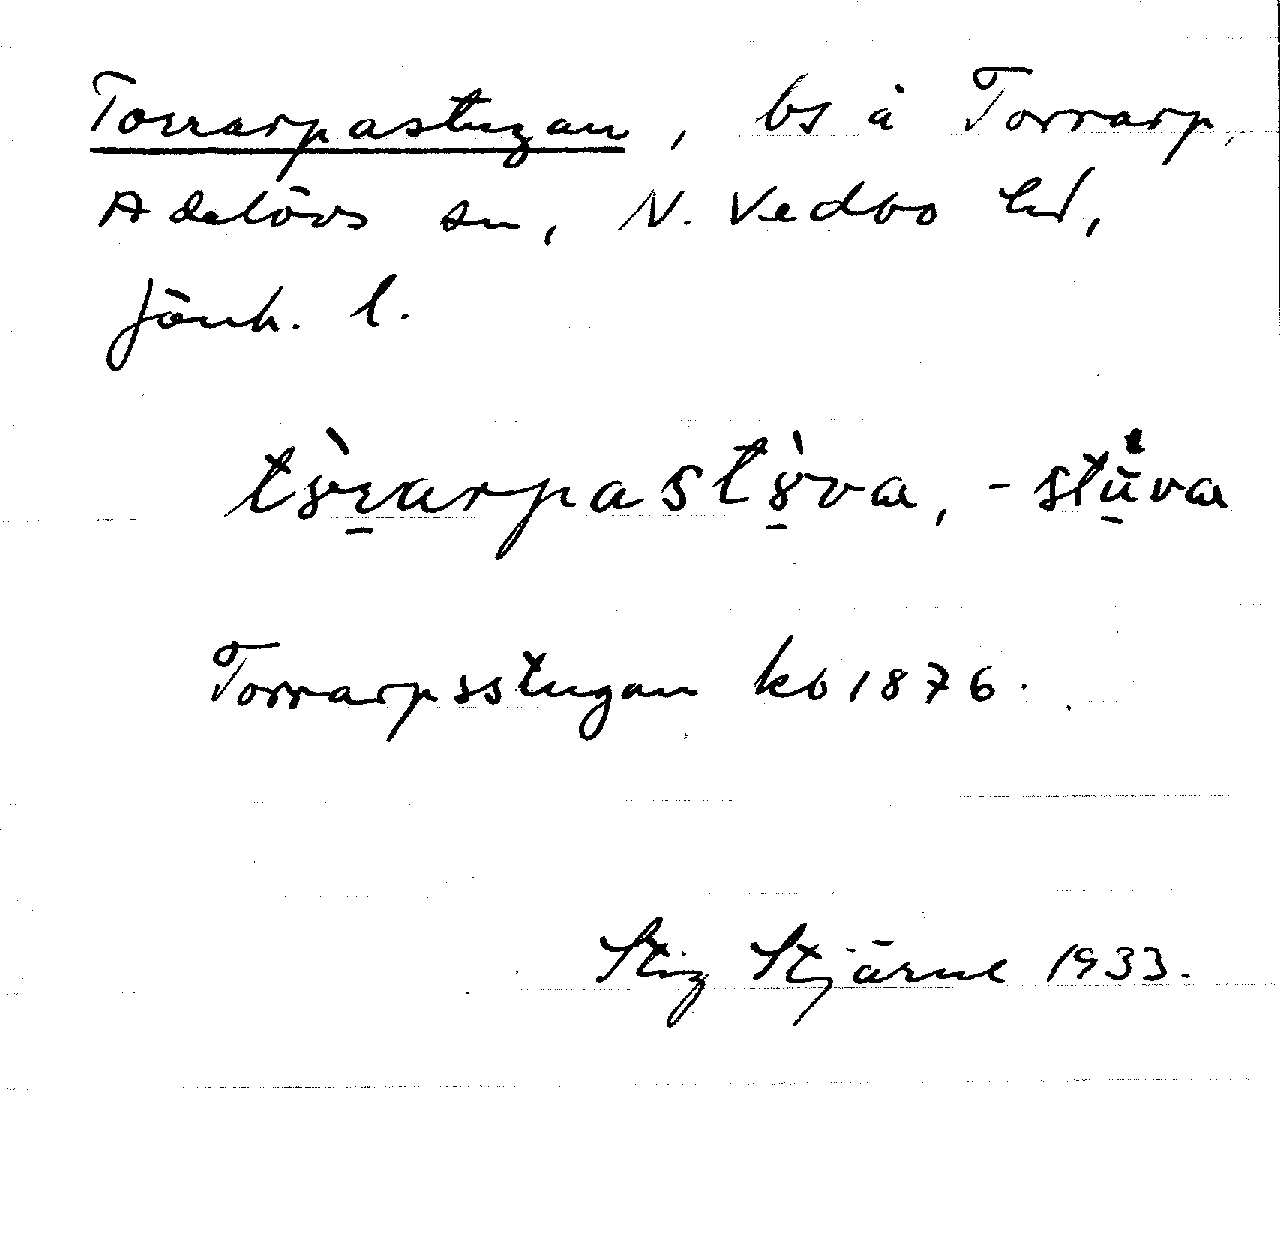 Torrarpastugan, bs å Torrarp,
Adelövs sn, N. Vedbo hd,
Jönk. l.
Torrarpsstugan kb 1876.
Stig Stjärne 1933.